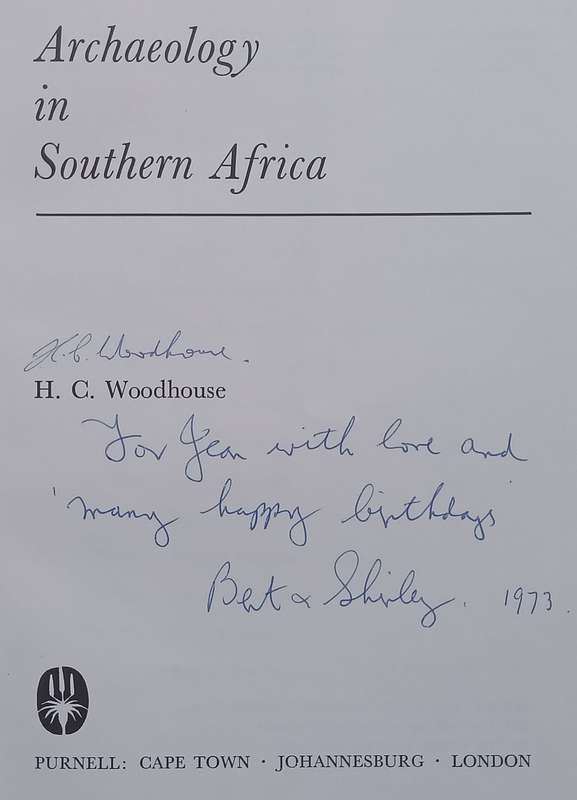 Archaeology
in
Southern Africa
H.C. Woodhouse.
H. C. Woodhouse
For Jean with love and
'many happy birthdays'
Bert & Shirley. 1973.
PURNELL: CAPE TOWN · JOHANNESBURG · LONDON